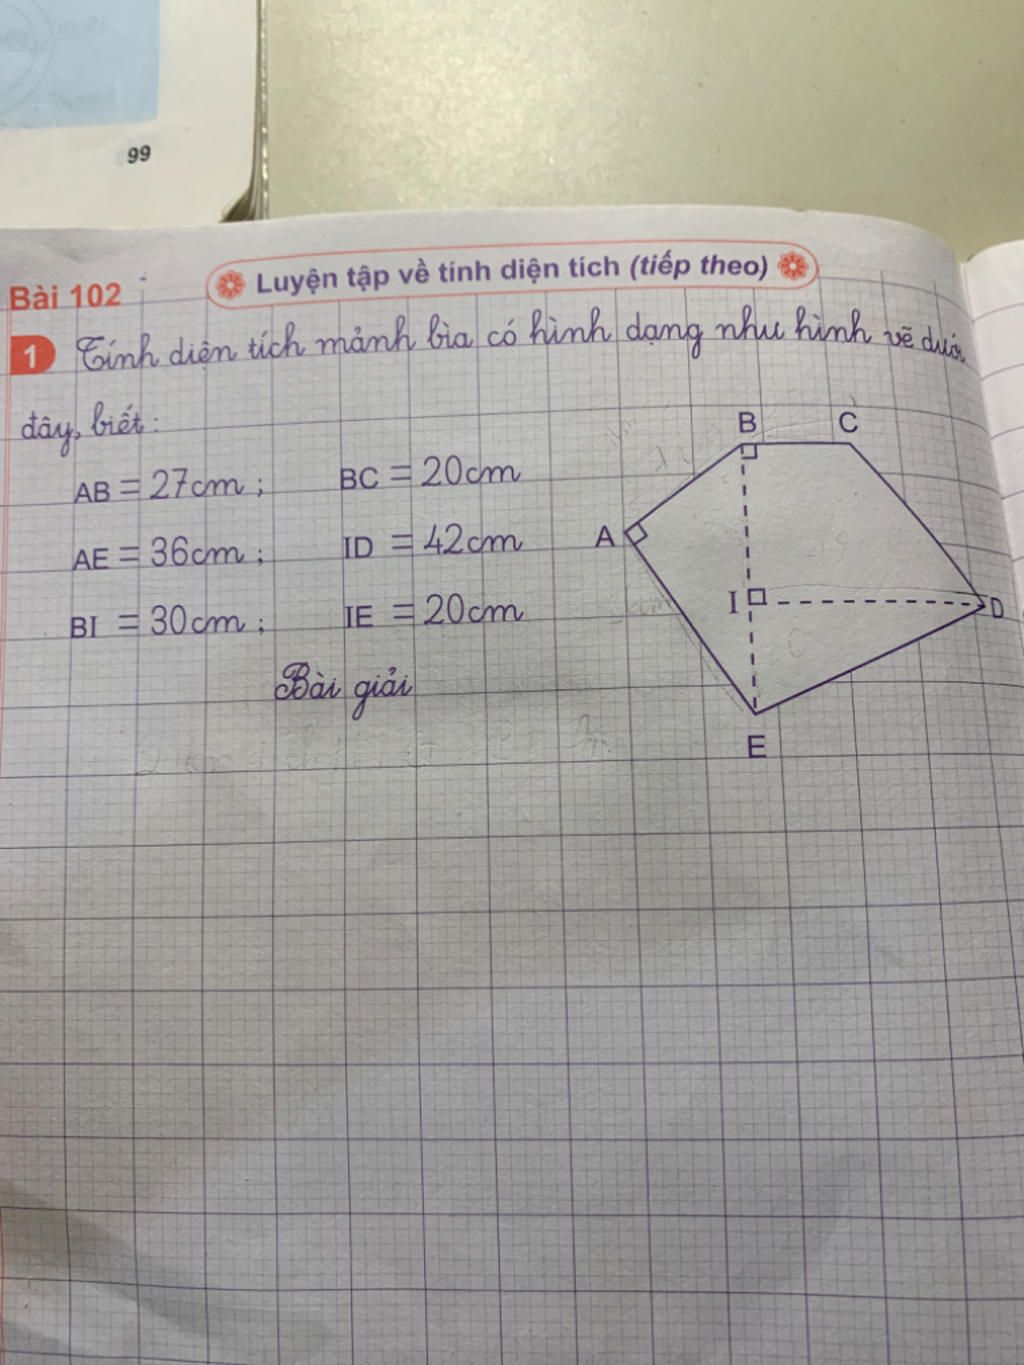 99
Bài 102
Luyện tập về tính diện tích (tiếp theo)
1 Tính diện tích mảnh bìa có hình dạng như hình vẽ dưới
đây, biết:
AB = 27cm ; BC = 20cm
AE = 36cm ; ID = 42cm
BI = 30cm ; IE = 20cm
Bài giải
B C
A
I D
E